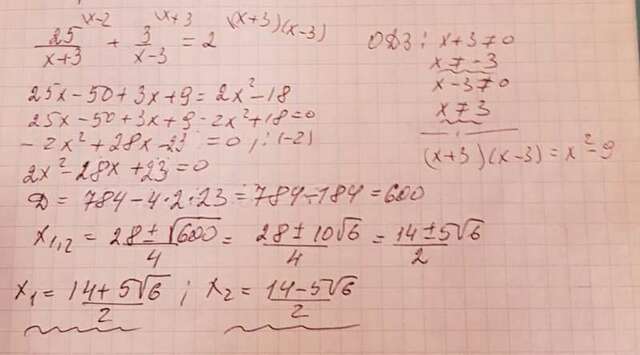 25/(x+3) ^(x-2 + 3/(x-3) ^(x+3 = 2 ^((x+3)(x-3)
ОДЗ: x+3≠0
x≠-3
x-3≠0
x≠3
(x+3)(x-3)=x²-9
25x-50+3x+9=2x²-18
25x-50+3x+9-2x²+18=0
-2x²+28x-23=0 /:(-2)
2x²-28x+23=0
D=784-4·2·23=784-184=600
x₁,₂ = (28±√600)/4 = (28±10√6)/4 = (14±5√6)/2
x₁ = (14+5√6)/2 ; x₂ = (14-5√6)/2